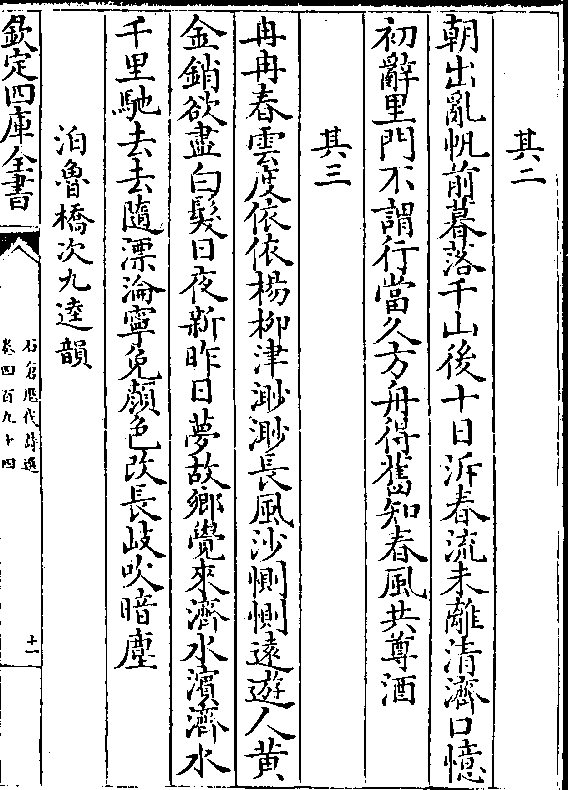 其二
朝出亂帆前暮落千山後十日泝春流未離清濟口憶
初辭里門不謂行當久方舟得舊知春風共尊酒
其三
冉冉春雲度依依楊柳津渺渺長風沙惻惻遠遊人黄
金銷欲盡白髮日夜新昨日夢故鄉覺來濟水濱濟水
千里馳去去隨漂淪寧免顔色改長岐吹暗塵
泊魯橋次九逵韻
欽定四庫全書
石倉歷代詩選
卷四百九十四
十一